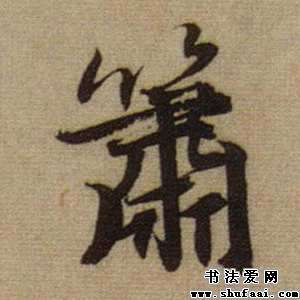 簫
书法爱网
www.shufaai.com